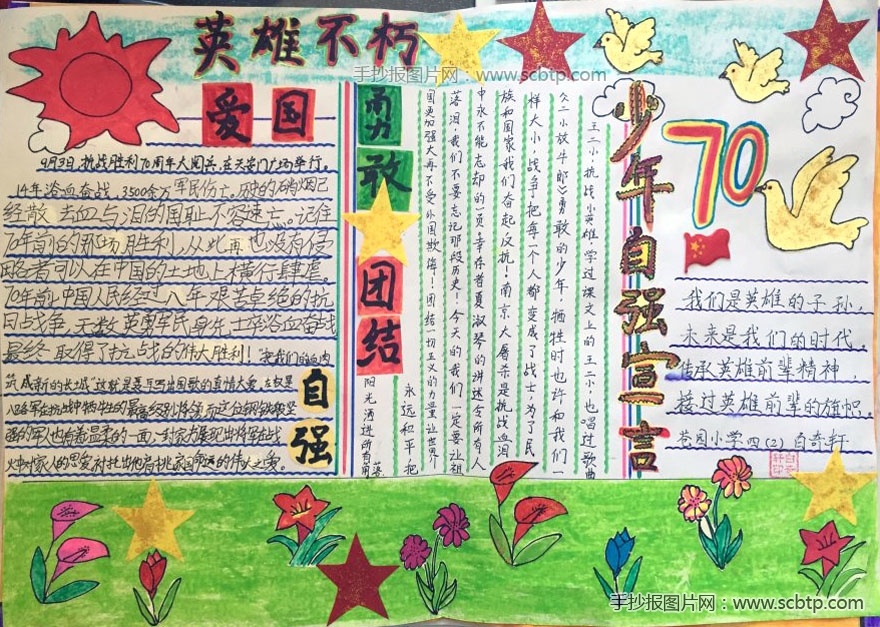 英雄不朽
手抄报图片网:www.scbtp.com
爱国
9月3日,抗战胜利70周年大阅兵,在天安门广场举行。
14年浴血奋战,3500余万军民伤亡。历史的硝烟已
经散去,血与泪的国耻不容速亡。记住
70年前的那场胜利,从此再也没有侵
略者可以在中国的土地上横行肆虐
70年前,中国人民经过八年艰苦卓绝的抗
日战争,无数英勇军民身先士卒浴血奋战
最终取得了抗战的伟大胜利!"把我们的血肉
筑成新的长城"这就是
自强
勇敢
团结
王二小抗战小英雄,学过课文上的王二小,也唱过歌曲
《二小放牛郎》勇敢的少年,牺牲时也许和我们一
样大小,战争,把每一个人都变成了战士,为了民
族和国家,我们奋起反抗!南京大屠杀是抗战血泪
中永不能忘却的一页,幸存者夏淑琴的讲述令所有人
落泪,我们不要忘记那段历史!今天的我们一定要让祖
国更加强大再不受外国欺侮!团结一切正义的力量让世界
永远和平,把
阳光洒进所有角落
少年自强宣言
70
我们是英雄的子孙,
未来是我们的时代。
传承英雄前辈精神,
接过英雄前辈的旗帜。
苍园小学四(2)白奇轩
手抄报图片网:www.scbtp.com